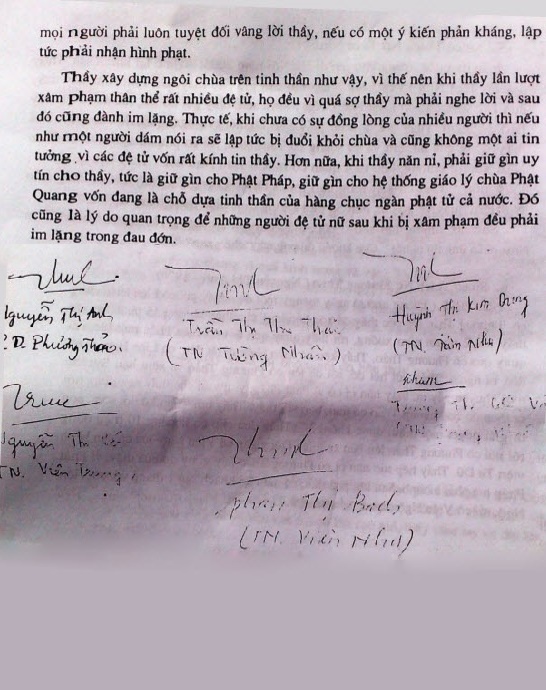 mọi người phải luôn tuyệt đối vâng lời thầy, nếu có một ý kiến phản kháng, lập
tức phải nhận hình phạt.
Thầy xây dựng ngôi chùa trên tinh thần như vậy, vì thế nên khi thầy lần lượt
xâm phạm thân thể rất nhiều đệ tử, họ đều vì quá sợ thầy mà phải nghe lời và sau
đó cũng đành im lặng. Thực tế, khi chưa có sự đồng lòng của nhiều người thì nếu
như một người dám nói ra sẽ lập tức bị đuổi khỏi chùa và cũng không một ai tin
tưởng vì các đệ tử vốn rất kính tin thầy. Hơn nữa, khi thầy năn nỉ, phải giữ gìn uy
tín cho thầy, tức là giữ gìn cho Phật Pháp, giữ gìn cho hệ thống giáo lý chùa Phật
Quang vốn đang là chỗ dựa tinh thần của hàng chục ngàn phật tử cả nước. Đó
cũng là lý do quan trọng để những người đệ tử nữ sau khi bị xâm phạm đều phải
im lặng trong đau đớn.
Nguyễn Thị Anh
Trần Thị Thu
(TN Tường Nhẫn)
Huỳnh Thị Kim Dung
(TN. Tâm Như)
Nguyễn Thị
TN. Viên Trung
Phan Thị Bạch
(TN. Viên Như)